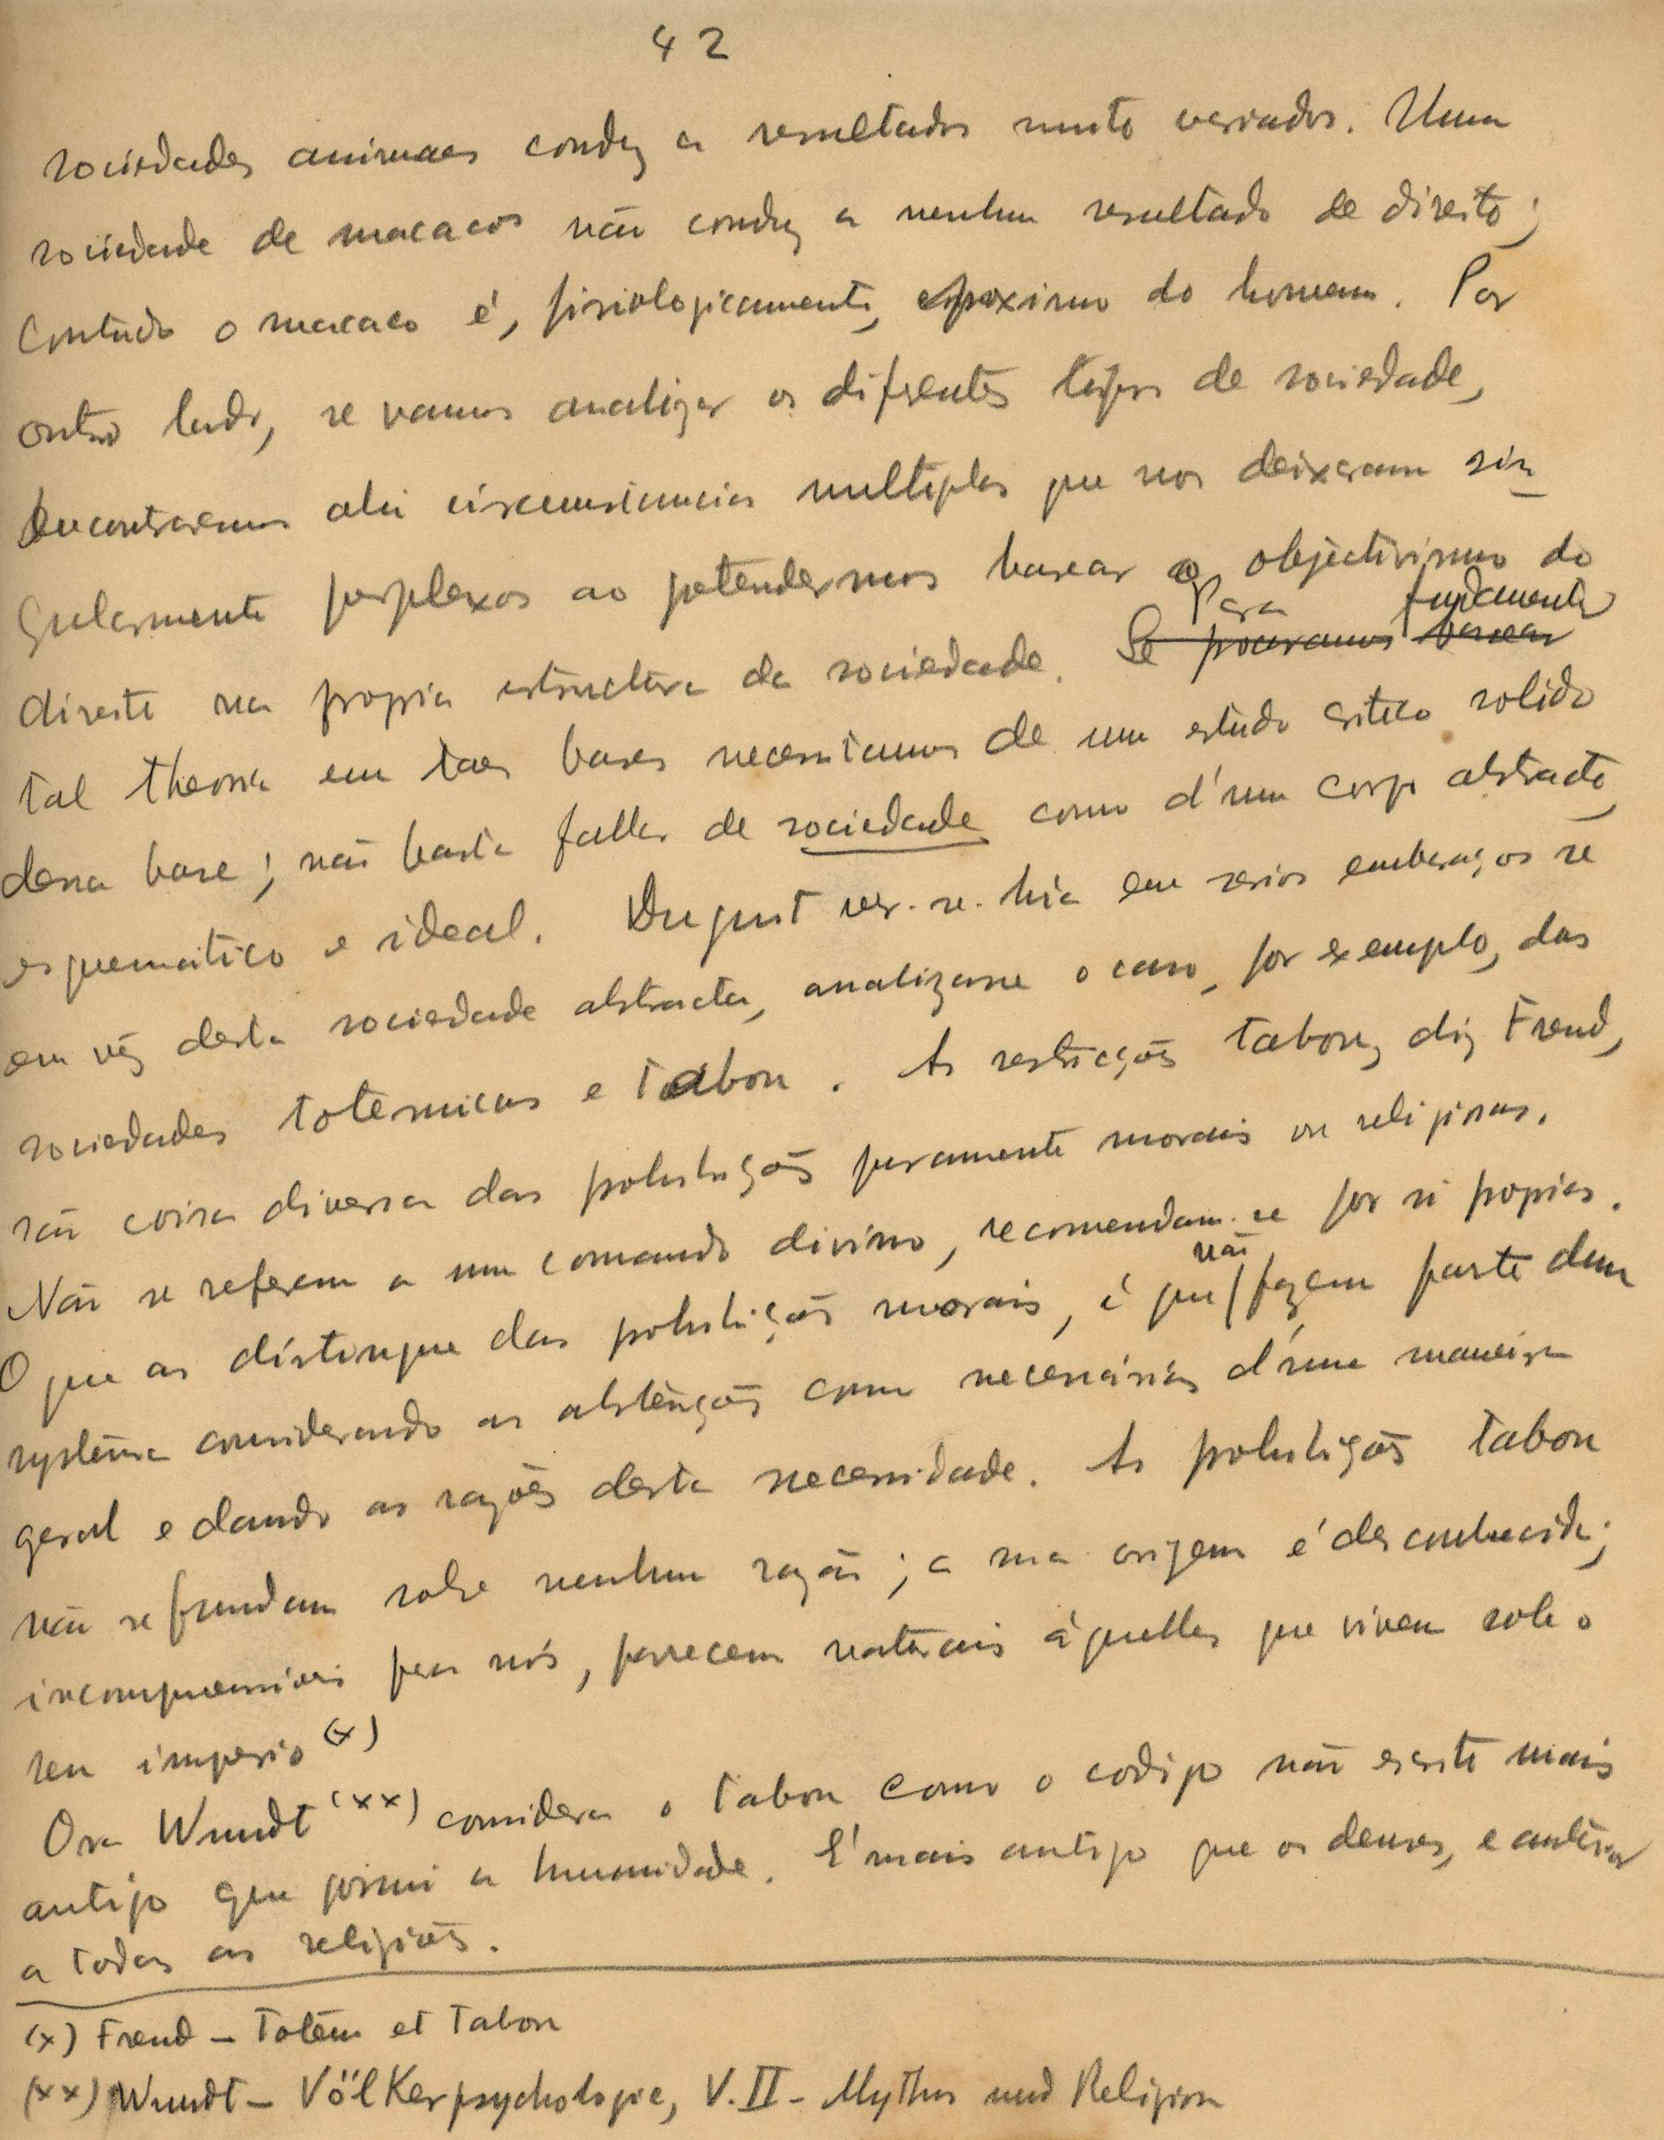 42
sociedades animaes conduz a resultados muito variados. Uma
sociedade de macacos não conduz a nenhum resultado de direito;
Contudo o macaco é, fisiologicamente, o proximo do homem. Por
outro lado, se vamos analizar os differentes typos de sociedade,
Encontraremos ahi circumstancias multiplas que nos deixaram sin-
gularmente perplexos ao pretendermos basear o objectivismo do
Para fundamentar
direito na propria estructura da sociedade. Se procuramos basear
tal theoria em taes bases necessitamos de um estudo critico solido
dessa base; não basta fallar de sociedade como d'um corpo abstracto,
esquematico e ideal. Duguit ver-se-hia em serios embaraços se
em vez desta sociedade abstracta, analizasse o caso, por exemplo, das
sociedades totemicas e tabou. As restricções tabou, diz Freud,
são coisa diversa das prohibições puramente morais ou religiosas.
Não se referem a um comando divino, recomendam-se por si proprias.
não
O que as distingue das prohibições morais, é que fazem parte dum
systema considerando as abstenções como necessárias d'uma maneira
geral e dando as razões desta necessidade. As prohibições tabou
não se fundam sobre nenhuma razão; a sua origem é desconhecida;
incomprensiveis para nós, parecem naturais áquelles que vivem sob o
seu imperio (x)
Ora Wundt (xx) considera o tabou como o codigo não escrito mais
antigo que possui a humanidade. É mais antigo que os deuses, e anterior
a todas as religiões.
(x) Freud — Totem et Tabou
(xx) Wundt — Völkerpsychologie, V. II - Mythus und Religion